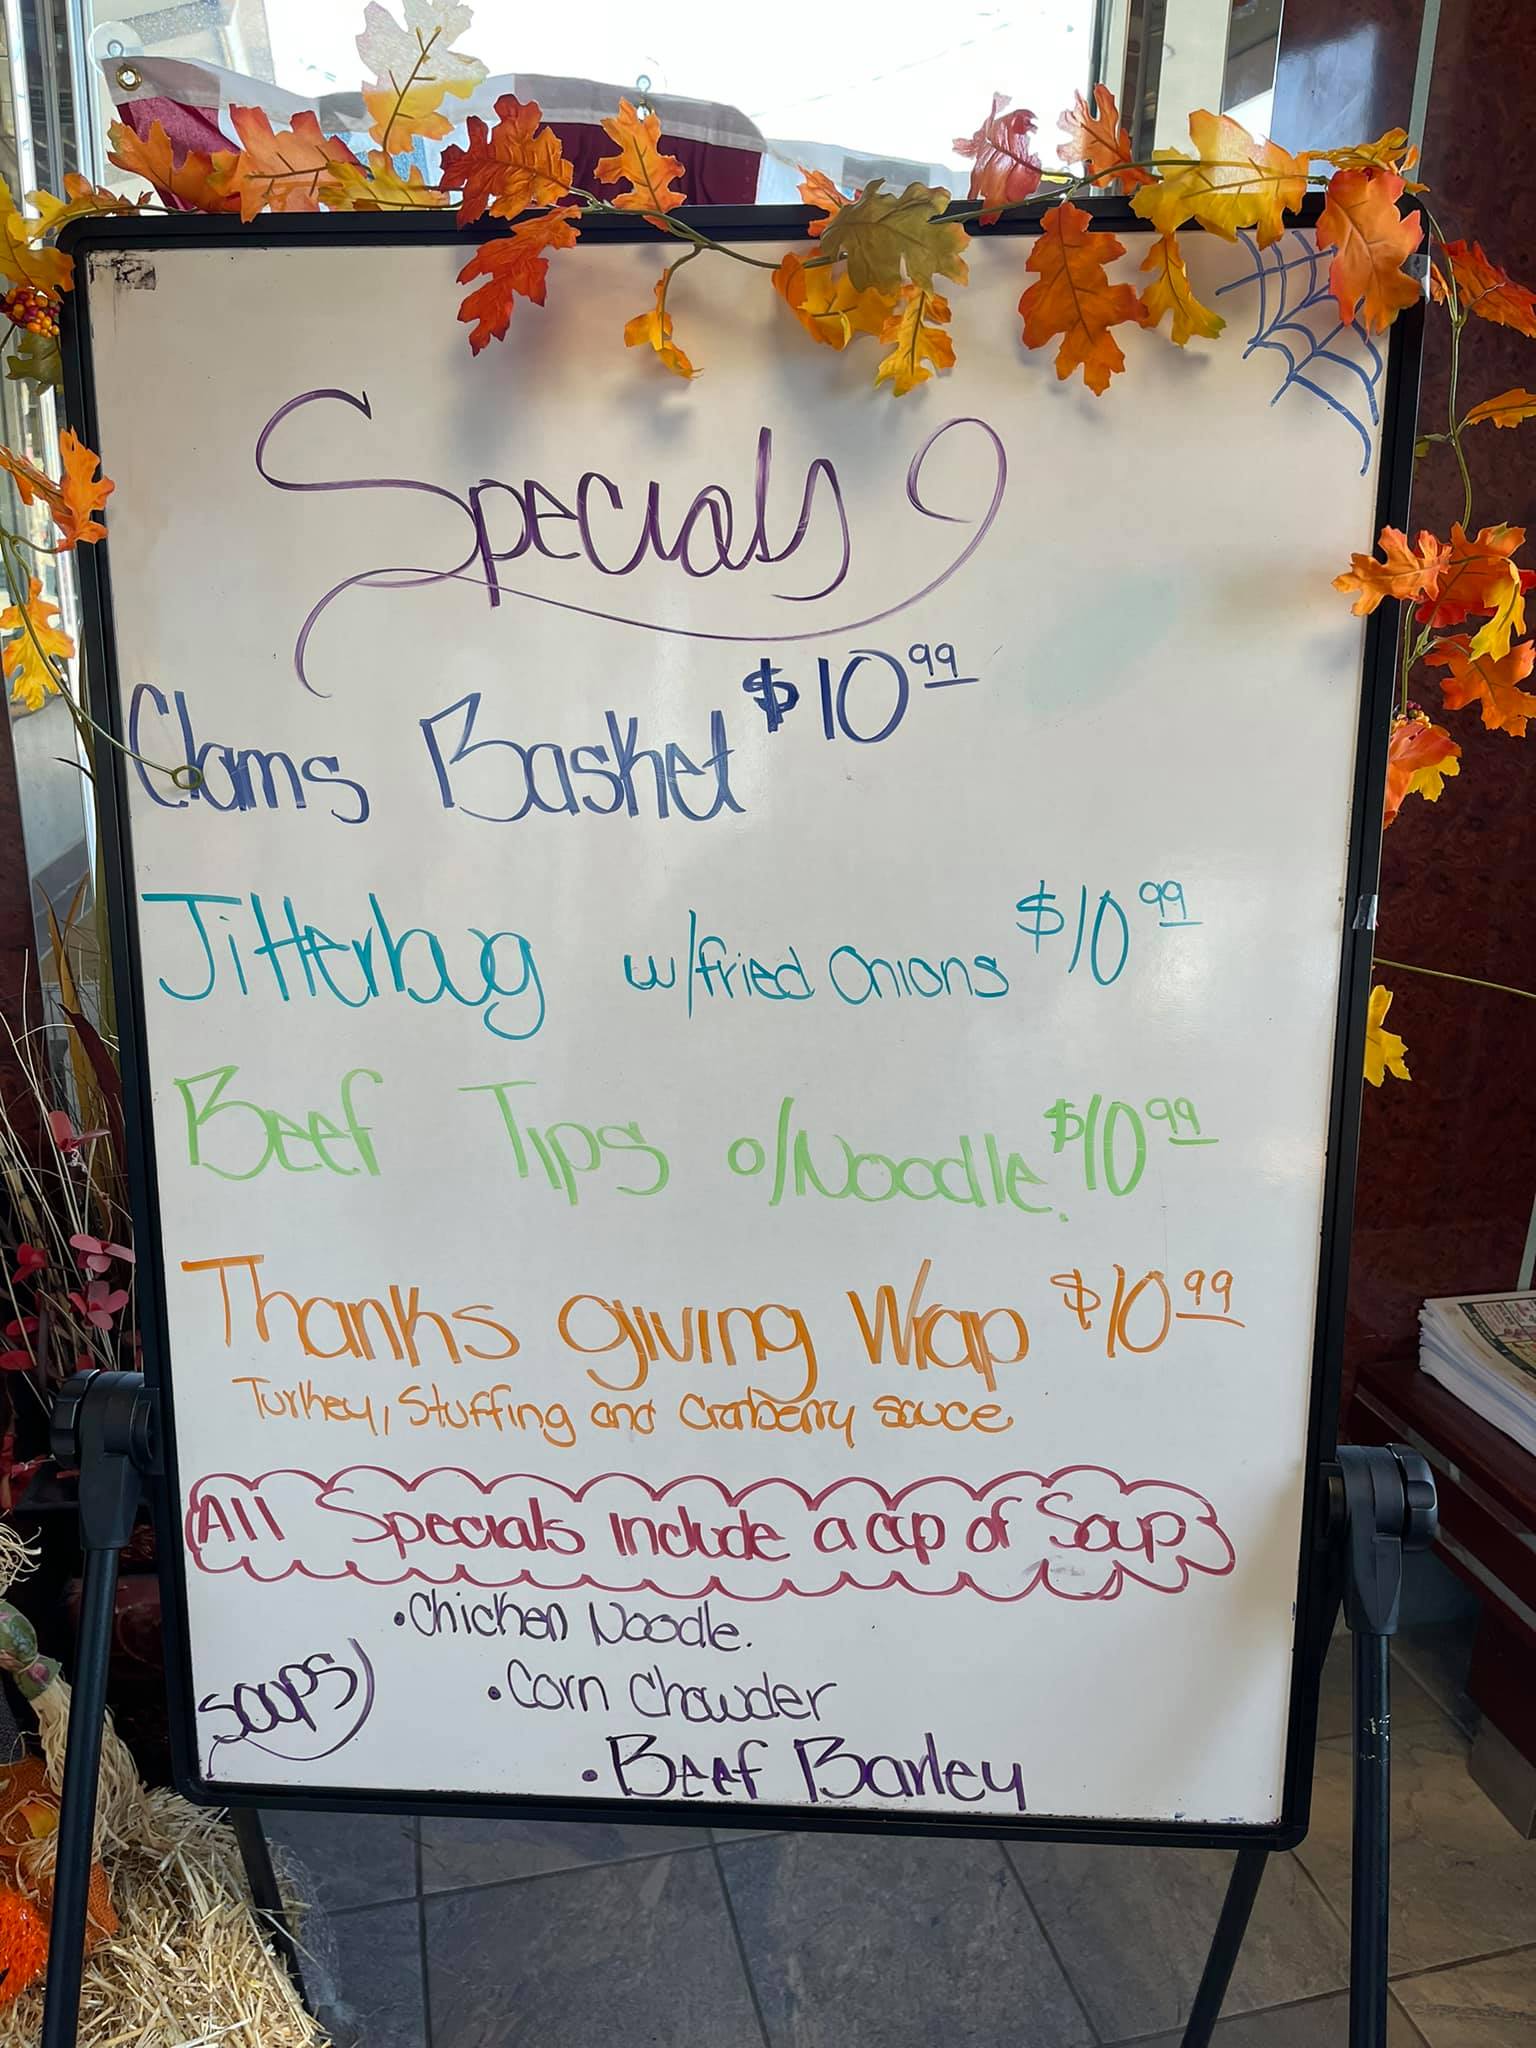 Specials
Clams Basket $10 99
Jitterbug w/fried onions $10 99
Beef Tips o/Noodle. $10 99
Thanks giving Wrap $10 99
Turkey, Stuffing and Cranberry sauce
All Specials include a cup of Soup
•Chicken Noodle.
Soups
•Corn Chowder
•Beef Barley